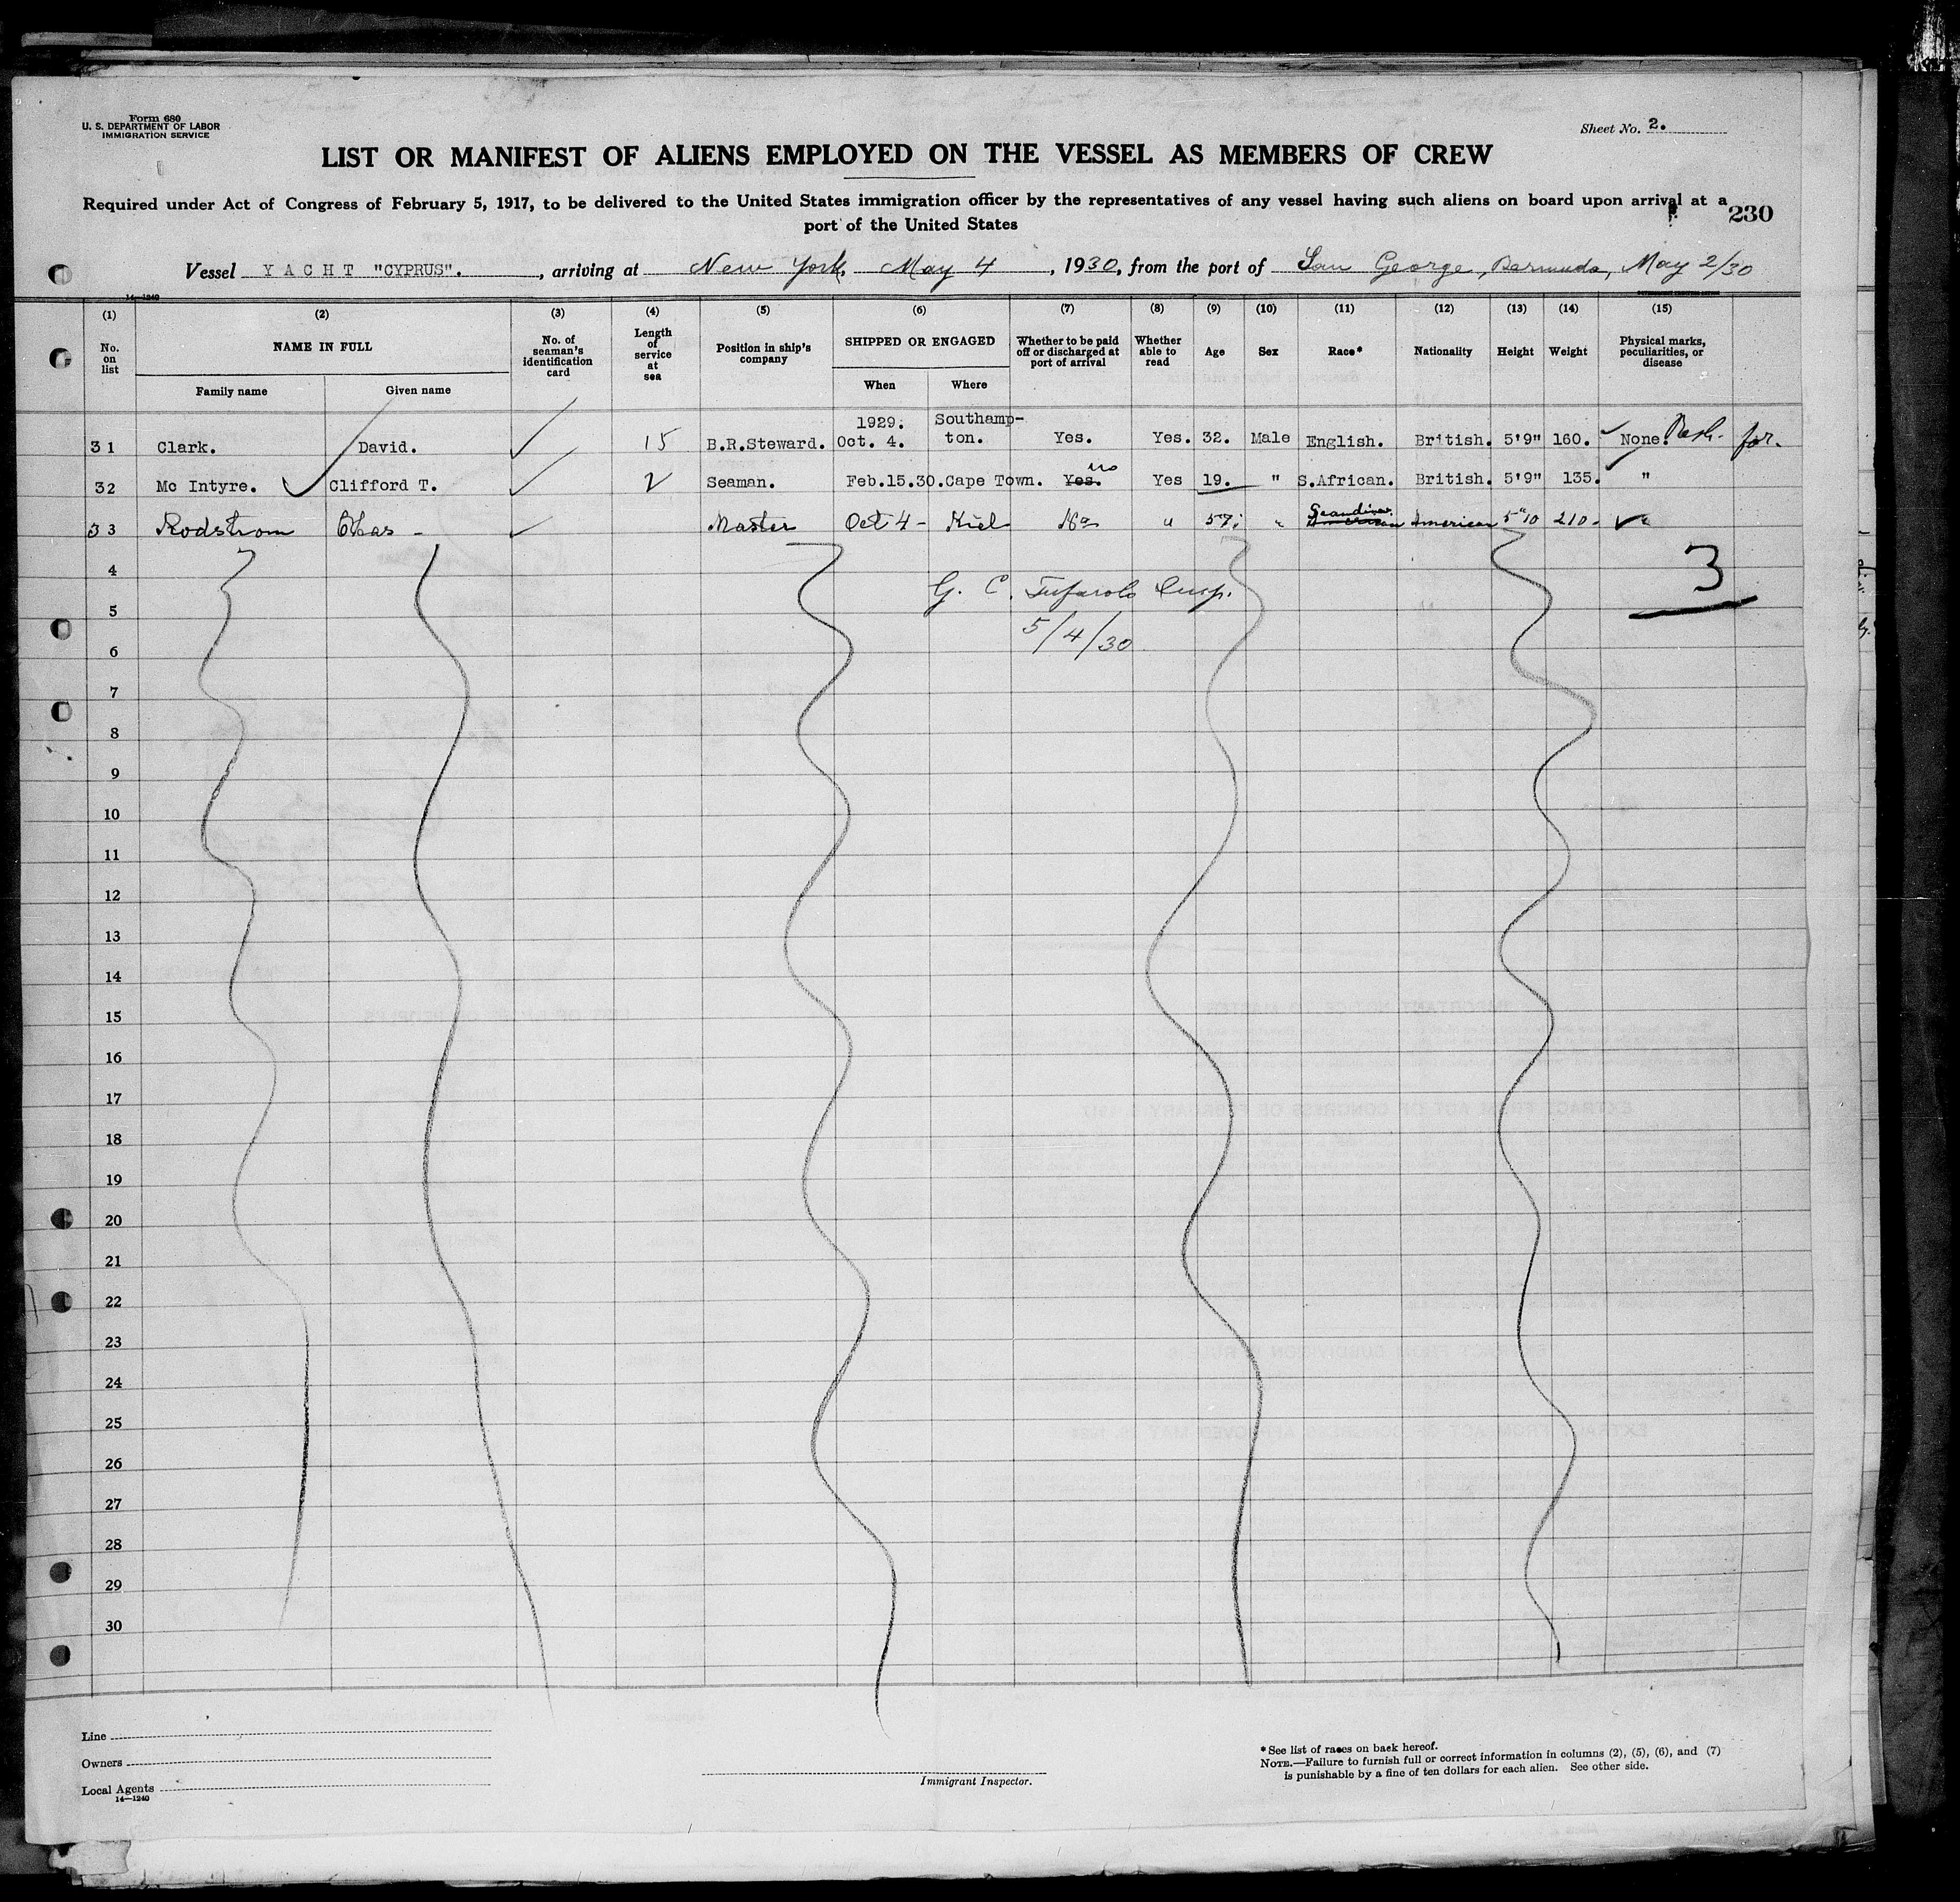 Form 680
U. S. DEPARTMENT OF LABOR
IMMIGRATION SERVICE
Sheet No. 2.
LIST OR MANIFEST OF ALIENS EMPLOYED ON THE VESSEL AS MEMBERS OF CREW
Required under Act of Congress of February 5, 1917, to be delivered to the United States immigration officer by the representatives of any vessel having such aliens on board upon arrival at a
port of the United States
230
Vessel YACHT "CYPRUS". , arriving at New York, May 4 , 1930, from the port of San George, Bermuda, May 2/30
14—1240
(1) (2) (3) (4) (5) (6) (7) (8) (9) (10) (11) (12) (13) (14) (15)
No. on list NAME IN FULL No. of seaman's identification card Length of service at sea Position in ship's company SHIPPED OR ENGAGED Whether to be paid off or discharged at port of arrival Whether able to read Age Sex Race* Nationality Height Weight Physical marks, peculiarities, or disease
Family name Given name When Where
1929. Southamp-
31 Clark. David. 15 B.R.Steward. Oct. 4. ton. Yes. Yes. 32. Male English. British. 5'9" 160. None.
no
32 Mc Intyre. Clifford T. 2 Seaman. Feb.15.30. Cape Town. Yes. Yes 19. " S.African. British. 5'9" 135. "
33 Rodstrom Chas - Master Oct 4 - Kiel No " 57. " Scandinav. American American 5"10 210. "
3
4
G. C. Insp.
5
5/4/30
6
7
8
9
10
11
12
13
14
15
16
17
18
19
20
21
22
23
24
25
26
27
28
29
30
Line
Owners
Local Agents
14—1240
Immigrant Inspector.
*See list of races on back hereof.
NOTE.—Failure to furnish full or correct information in columns (2), (5), (6), and (7)
is punishable by a fine of ten dollars for each alien. See other side.